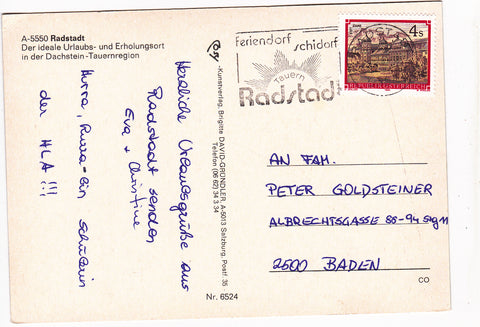 A-5550 Radstadt
Der ideale Urlaubs- und Erholungsort
in der Dachstein-Tauernregion
Herzliche Urlaubsgrüße aus
Radstadt senden
Eva + Christine
Hurra, Hurra - Ein Schülerin
der HLA !!!
Kunstverlag, Brigitte DAVID-GRÜNDLER, A-5013 Salzburg, Postf. 35
Telefon (06 62) 34 3 34
Nr. 6524
feriendorf
schidorf
Tauern
Radstadt
4 S
REPUBLIK ÖSTERREICH
AN FAM.
PETER GOLDSTEINER
ALBRECHTSGASSE 88-94
2500 BADEN
CO